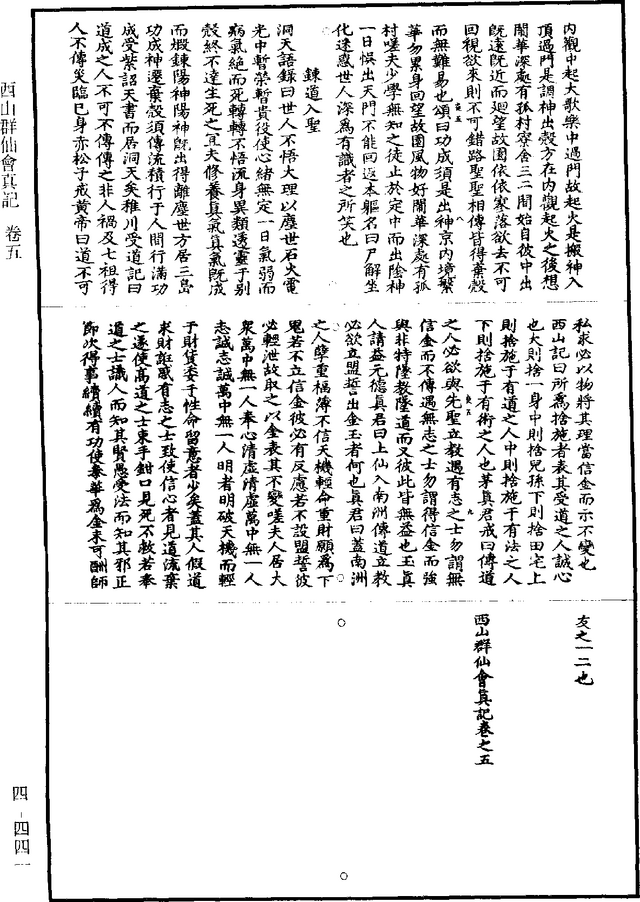 內觀中起大歌樂中過門故起火是搬神入
頂過門是調神出殼方在內觀起火之後想
鬧華深處有孤村寮舍三二間始自彼中出
既遠既近而廻望故園依依寥落欲去不可
回視欲來則不可錯路聖聖相傳皆得棄殼
而無難易也頌曰功成須是出神京內境繁
華勿累身回望故園風物好鬧華深處有孤
村嗟夫少學無知之徒止於定中而出陰神
一日悞出天門不能回返本軀名曰尸解坐
化迷惑世人深為有識者之所笑也
鍊道入聖
洞天語録曰世人不悟大理以塵世石火電
光中暫榮暫貴役使心緒無定一日氣弱而
病氣絶而死轉轉不悟流身異類透靈于别
殼終不達生死之宜夫修養真氣真氣既成
而煅鍊陽神陽神既出得離塵世方居三島
功成神遷棄殼須傳流積行于人間行滿功
成受紫詔天書而居洞天矣稚川受道記曰
道成之人不可不傳傳之非人禍及七祖得
人不傳災臨已身赤松子戒黄帝曰道不可
私求必以物將其理當信金而示不變也
西山記曰所爲捨施者表其受道之人誠心
也大則捨一身中則捨兒孫下則捨田宅上
則捨施于有道之人中則捨施于有法之人
下則捨施于有術之人也茅真君戒曰傳道
之人必欲與先聖立教遇有志之士勿謂無
信金而不傳遇無志之士勿謂得信金而強
與非特隳教墜道而又彼此皆無益也玉真
人請益元德真君曰上仙入南洲傳道立教
必欲立盟誓出金玉者何也真君曰蓋南洲
之人孽重福薄不信天機輕命重財願爲下
鬼若不立信金彼必有反慮若不設盟誓彼
必輕泄故取之以金表其不變嗟夫人居大
衆萬中無一人奉心清虛清虛萬中無一人
志誠志誠萬中無一人明者明破天機而輕
于財貨委于性命留意者少矣蓋其人假道
求財誑惑有志之士致使信心者見道流棄
之遂使高道之士束手鉗口見死不救若奉
道之士識人而知其賢愚受法而知其邪正
節次得事續續有功使泰華爲金未可酬師
友之一二也
西山群仙會真記卷之五
西山群仙會真記 卷五
四-四四一